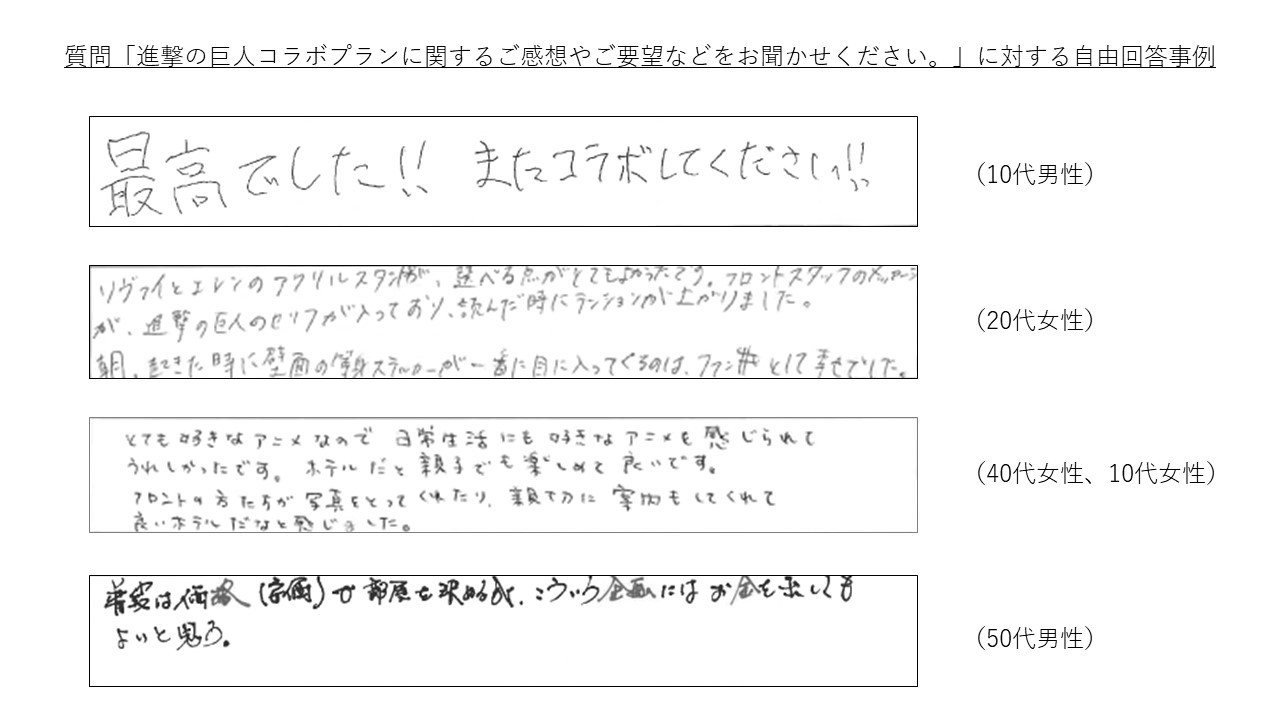 質問「進撃の巨人コラボプランに関するご感想やご要望などをお聞かせください。」に対する自由回答事例
最高でした!! またコラボしてください!!
(10代男性)
リヴァイとエレンのアクリルスタンドが、選べる点がとてもよかったです。フロントスタッフのメッセージ
が、進撃の巨人のセリフが入っており、読んだ時にテンションが上がりました。
朝、起きた時に壁面の等身ステッカーが一番に目に入ってくるのは、ファンとして幸せでした。
(20代女性)
とても好きなアニメなので 日常生活にも好きなアニメを感じられて
うれしかったです。ホテルだと親子でも楽しめて良いです。
フロントの方たちが写真をとってくれたり、親切に案内もしてくれて
良いホテルだなと感じました。
(40代女性、10代女性)
普段は価格(安価)で部屋を決めるが、こういう企画にはお金を出しても
よいと思う。
(50代男性)